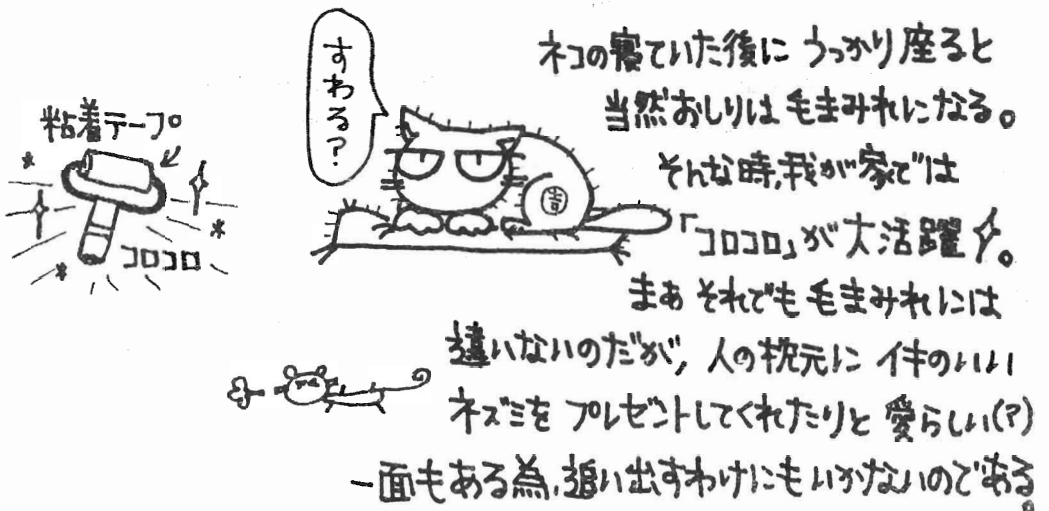 ネコの寝ていた後に うっかり座ると
当然おしりは 毛まみれになる。
そんな時、我が家では
「コロコロ」が大活躍。
まあ それでも 毛まみれには
違いないのだが、人の枕元に イキのいい
ネズミを プレゼントしてくれたりと 愛らしい(?)
一面もある為、追い出すわけにもいかないのである。
すわる?
吉
粘着テープ
コロコロ